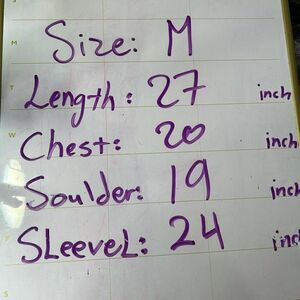 Size: M
Length: 27 inch
Chest: 20 inch
Soulder: 19 inch
SLeeveL: 24 inch